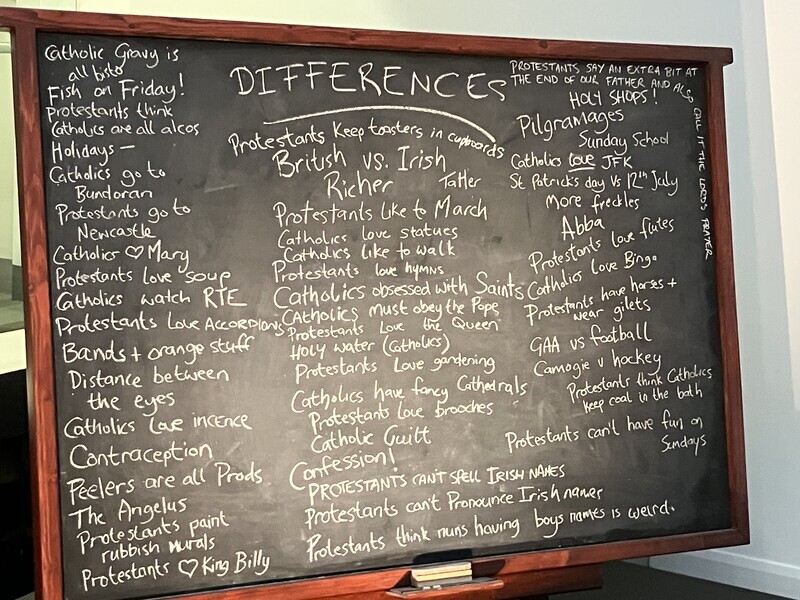 Catholic Gravy is
all bisto
Fish on Friday!
Protestants think
Catholics are all alcos
Holidays –
Catholics go to
Bundoran
Protestants go to
Newcastle
Catholics ♡ Mary
Protestants love soup
Catholics watch RTE
Protestants Love Accordions
Bands + orange stuff
Distance between
the eyes
Catholics love incence
Contraception
Peelers are all Prods.
The Angelus
Protestants paint
rubbish murals
Protestants ♡ King Billy
DIFFERENCES
Protestants Keep toasters in cupboards
British vs. Irish
Richer Taller
Protestants like to March
Catholics love statues
Catholics like to walk
Protestants love hymns
Catholics obsessed with Saints
Catholics must obey the Pope
Protestants Love the Queen
Holy water (Catholics)
Protestants Love gardening
Catholics have fancy Cathedrals
Protestants love brooches
Catholic Guilt
Confession!
PROTESTANTS CAN'T SPELL IRISH NAMES
Protestants can't Pronounce Irish names
Protestants think nuns having boys names is weird.
PROTESTANTS SAY AN EXTRA BIT AT
THE END OF OUR FATHER AND ALSO
CALL IT THE LORD'S PRAYER
HOLY SHOPS!
Pilgramages
Sunday School
Catholics love JFK
St Patrick's day vs 12th July
More freckles
Abba
Protestants love flutes
Catholics Love Bingo
Protestants have horses +
wear gilets
GAA vs football
Camogie v hockey
Protestants think Catholics
keep coal in the bath
Protestants can't have fun on
Sundays